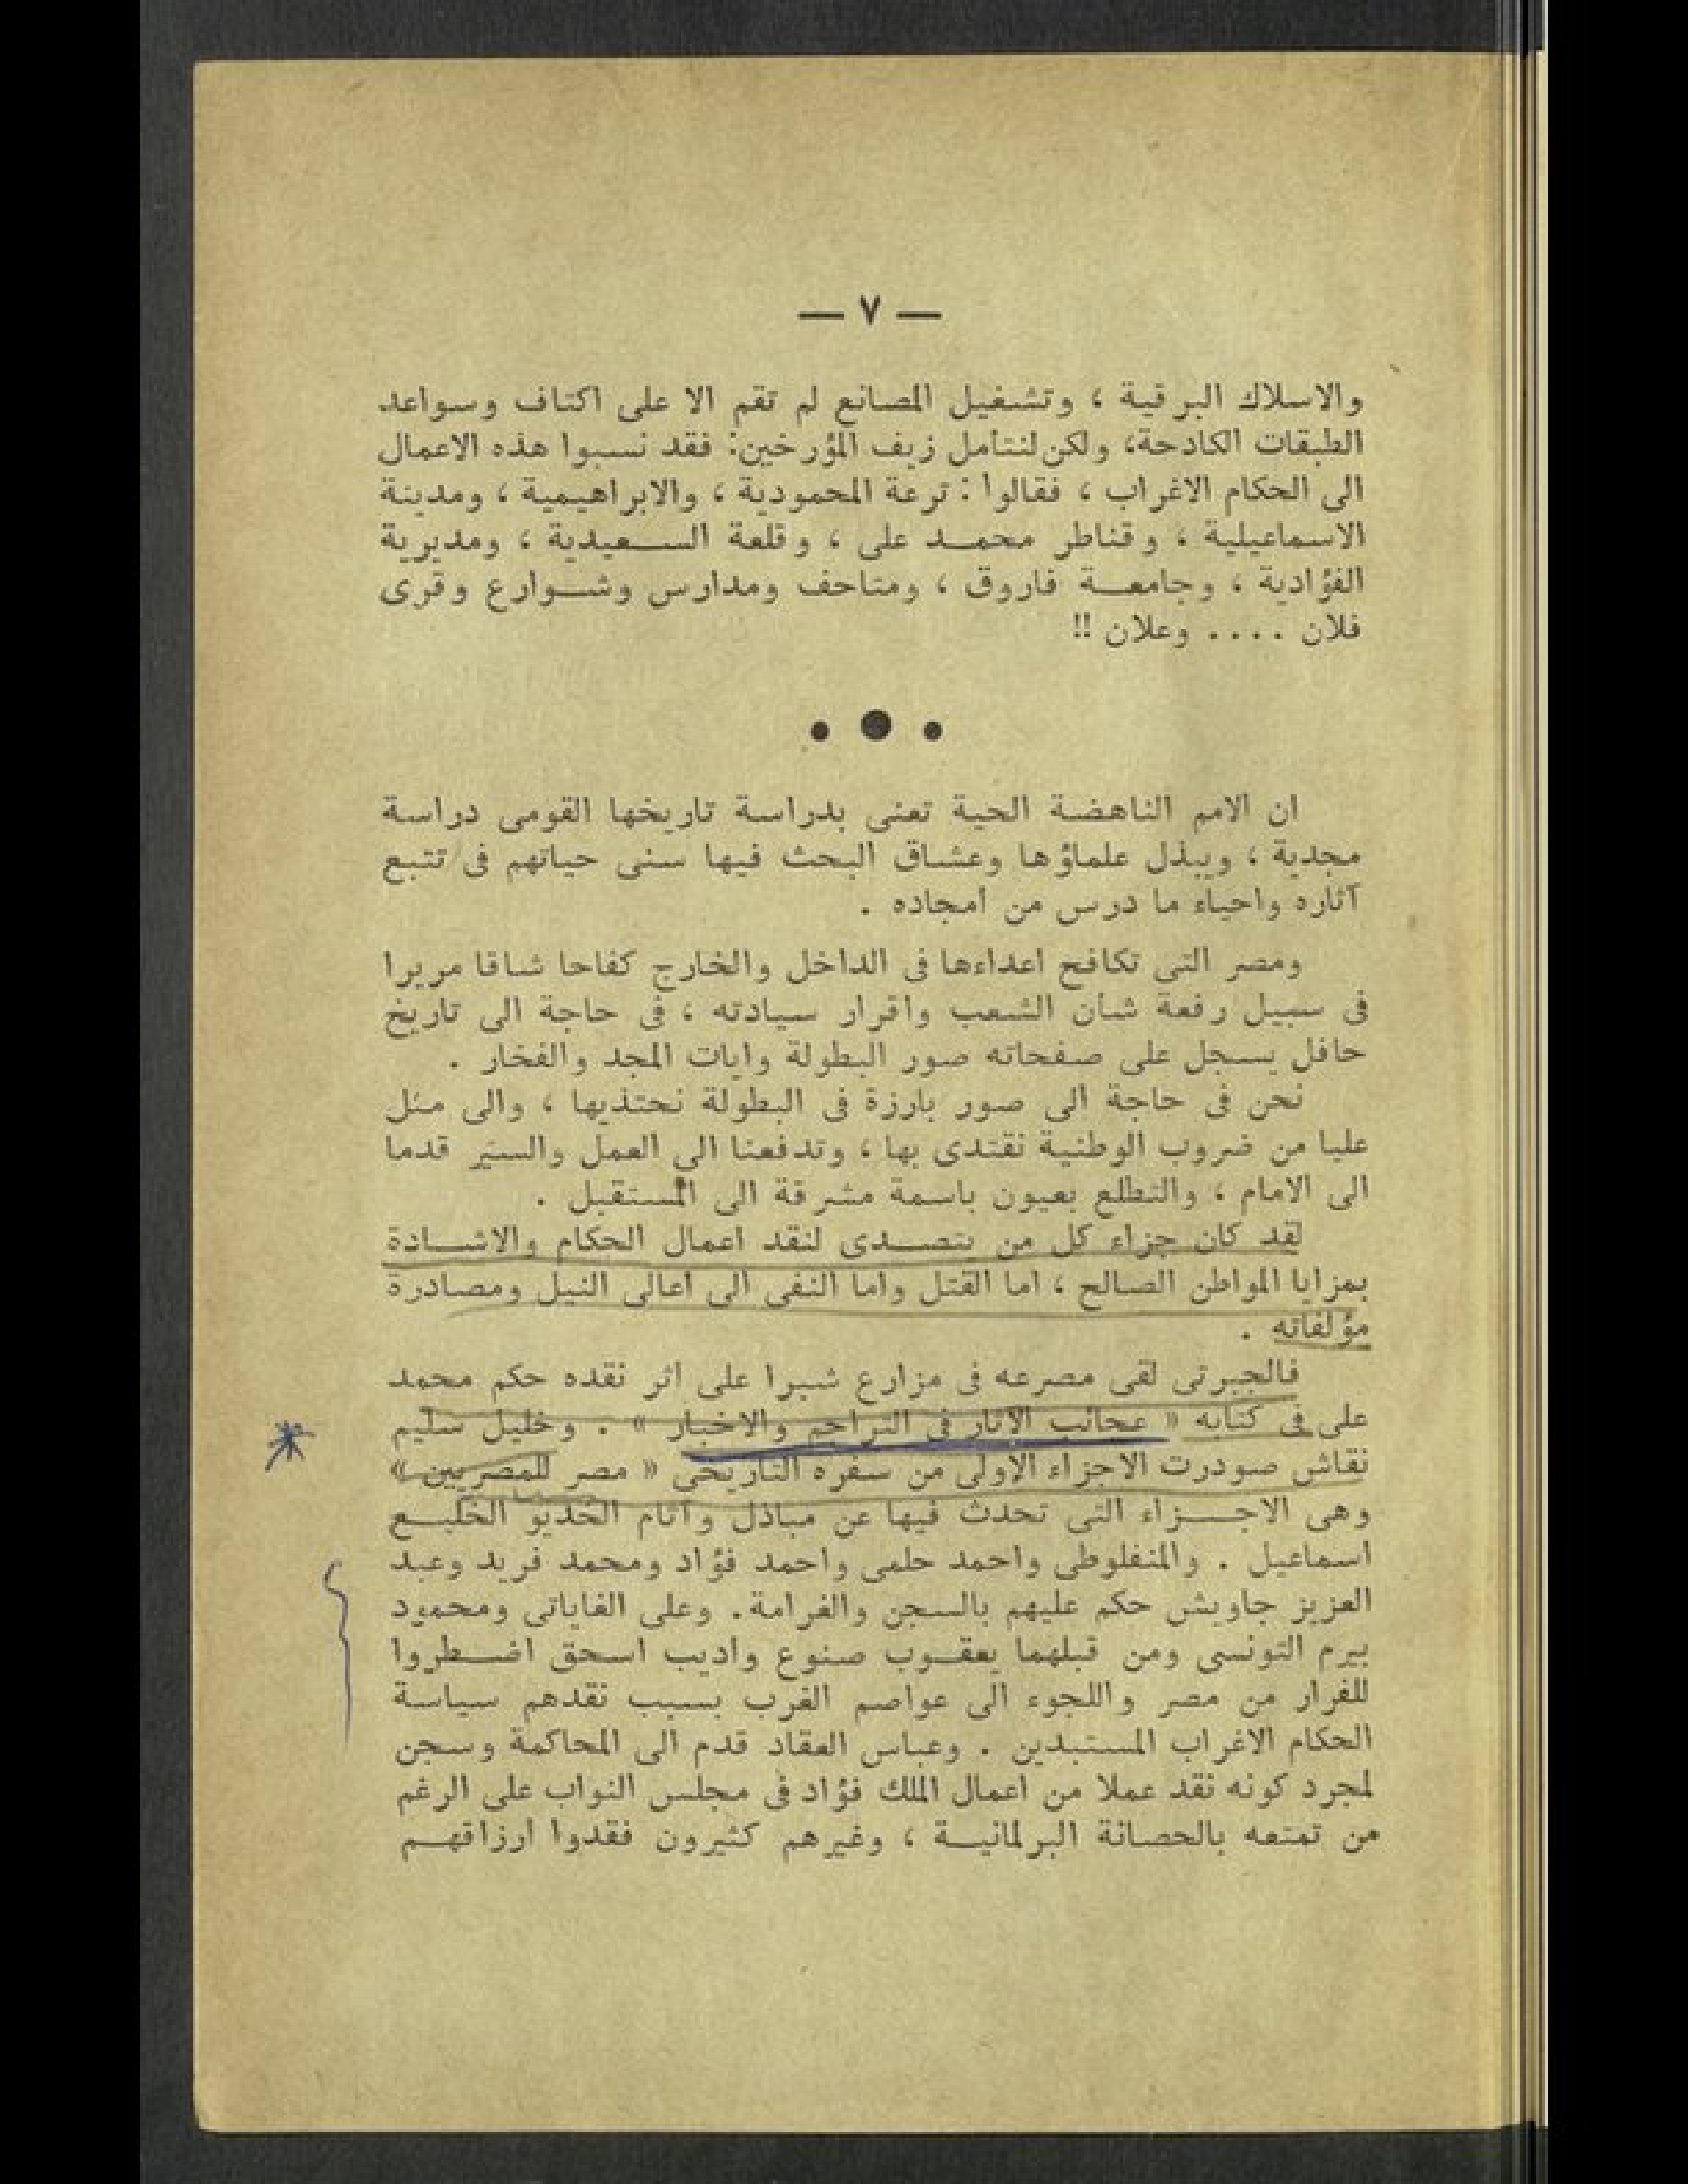 — ٧ —
والاسلاك البرقية ، وتشغيل المصانع لم تقم الا على اكتاف وسواعد
الطبقات الكادحة، ولكن لنتأمل زيف المؤرخين: فقد نسبوا هذه الاعمال
الى الحكام الاغراب ، فقالوا : ترعة المحمودية ، والابراهيمية ، ومدينة
الاسماعيلية ، وقناطر محمد على ، وقلعة السعيدية ، ومديرية
الفؤادية ، وجامعة فاروق ، ومتاحف ومدارس وشوارع وقرى
فلان .... وعلان !!
ان الامم الناهضة الحية تعنى بدراسة تاريخها القومى دراسة
مجدية ، ويبذل علماؤها وعشاق البحث فيها سنى حياتهم فى تتبع
آثاره واحياء ما درس من أمجاده .
ومصر التى تكافح اعداءها فى الداخل والخارج كفاحا شاقا مريرا
فى سبيل رفعة شأن الشعب واقرار سيادته ، فى حاجة الى تاريخ
حافل يسجل على صفحاته صور البطولة وايات المجد والفخار .
نحن فى حاجة الى صور بارزة فى البطولة نحتذيها ، والى مثل
عليا من ضروب الوطنية نقتدى بها ، وتدفعنا الى العمل والسير قدما
الى الامام ، والتطلع بعيون باسمة مشرقة الى المستقبل .
لقد كان جزاء كل من يتصدى لنقد اعمال الحكام والاشادة
بمزايا المواطن الصالح ، اما القتل واما النفى الى اعالى النيل ومصادرة
مؤلفاته .
فالجبرتى لقى مصرعه فى مزارع شبرا على اثر نقده حكم محمد
على فى كتابه « عجائب الآثار فى التراجم والاخبار » . وخليل سليم
نقاش صودرت الاجزاء الاولى من سفره التاريخى « مصر للمصريين »
وهى الاجزاء التى تحدث فيها عن مباذل وآثام الخديو الخليع
اسماعيل . والمنفلوطى واحمد حلمى واحمد فؤاد ومحمد فريد وعبد
العزيز جاويش حكم عليهم بالسجن والغرامة. وعلى الغاياتى ومحمود
بيرم التونسى ومن قبلهما يعقوب صنوع واديب اسحق اضطروا
للفرار من مصر واللجوء الى عواصم الغرب بسبب نقدهم سياسة
الحكام الاغراب المستبدين . وعباس العقاد قدم الى المحاكمة وسجن
لمجرد كونه نقد عملا من اعمال الملك فؤاد فى مجلس النواب على الرغم
من تمتعه بالحصانة البرلمانية ، وغيرهم كثيرون فقدوا ارزاقهم